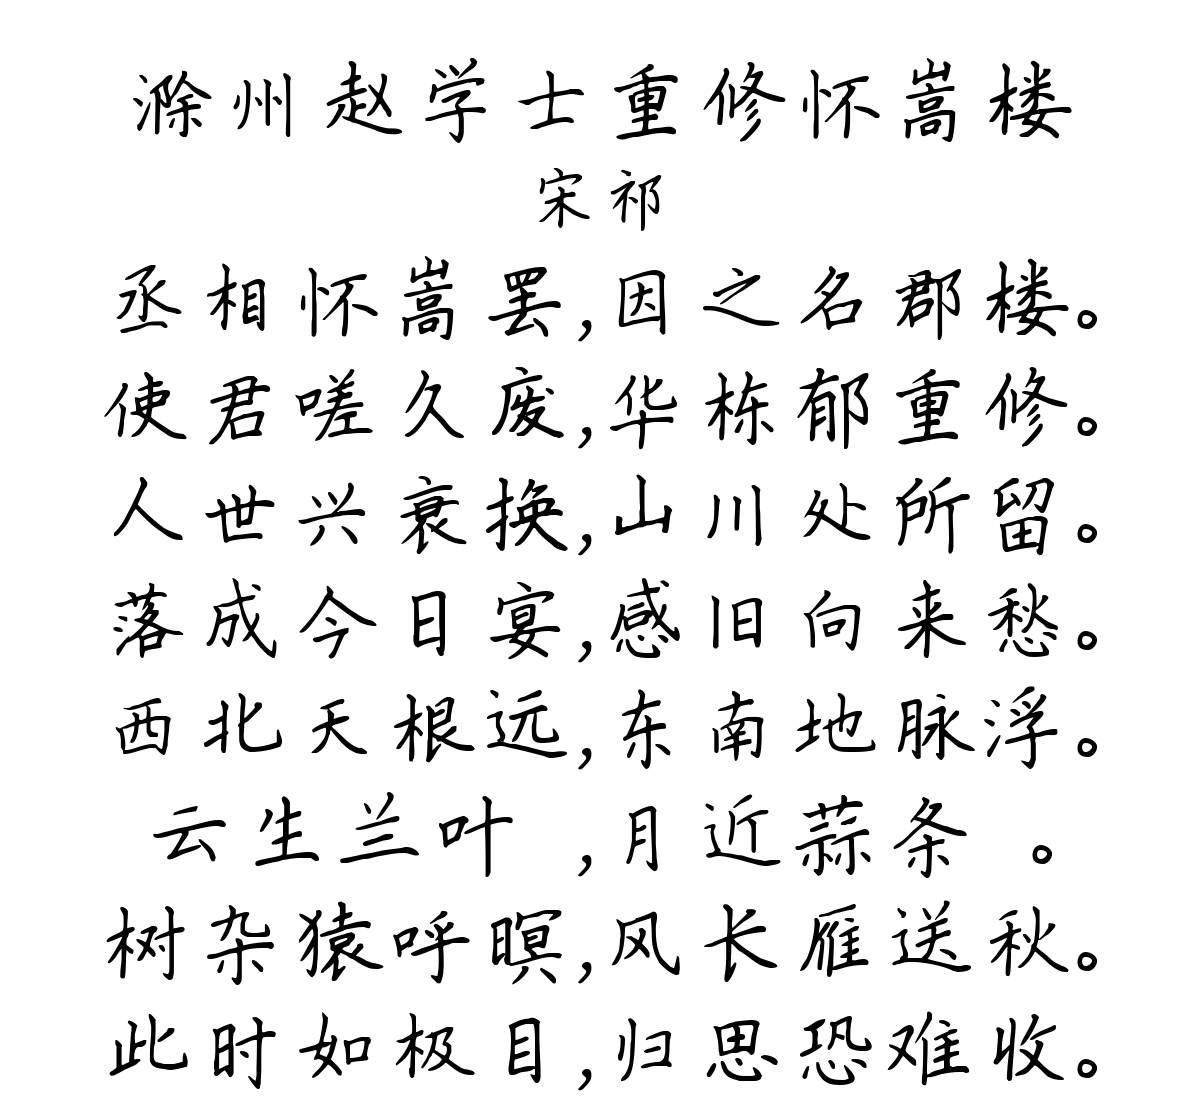 滁州赵学士重修怀嵩楼
宋祁
丞相怀嵩罢,因之名郡楼。
使君嗟久废,华栋郁重修。
人世兴衰换,山川处所留。
落成今日宴,感旧向来愁。
西北天根远,东南地脉浮。
云生兰叶,月近蒜条。
树杂猿呼暝,风长雁送秋。
此时如极目,归思恐难收。